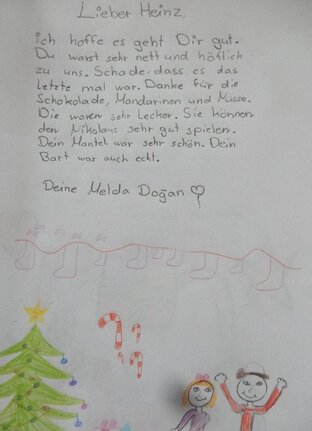 Lieber Heinz,
ich hoffe es geht Dir gut.
Du warst sehr nett und höflich
zu uns. Schade, dass es das
letzte mal war. Danke für die
Schokolade, Mandarinen und Nüsse.
Die waren sehr lecker. Sie können
den Nikolaus sehr gut spielen.
Dein Mantel war sehr schön. Dein
Bart war auch echt.
Deine Melda Doğan